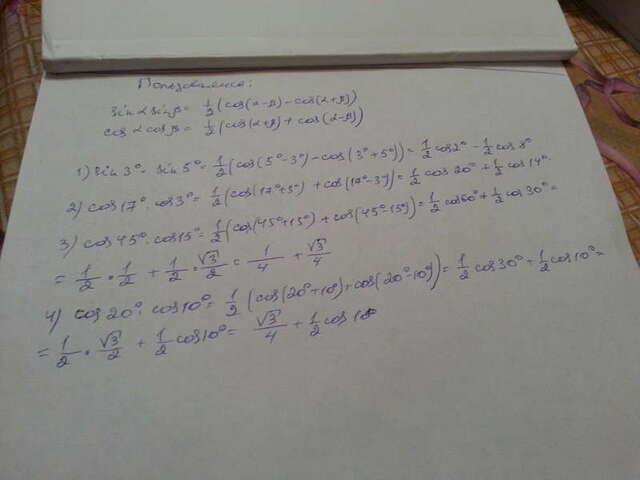 Пользовались:
sin α sin β = 1/2 (cos(α-β) - cos(α+β))
cos α cos β = 1/2 (cos(α+β) + cos(α-β))
1) sin 3° · sin 5° = 1/2 (cos(5°-3°) - cos(3°+5°)) = 1/2 cos 2° - 1/2 cos 8°
2) cos 17° · cos 3° = 1/2 (cos(17°+3°) + cos(17°-3°)) = 1/2 cos 20° + 1/2 cos 14°.
3) cos 45° · cos 15° = 1/2 (cos(45°+15°) + cos(45°-15°)) = 1/2 cos 60° + 1/2 cos 30° =
= 1/2 · 1/2 + 1/2 · √3/2 = 1/4 + √3/4
4) cos 20° · cos 10° = 1/2 (cos(20°+10°) + cos(20°-10°)) = 1/2 cos 30° + 1/2 cos 10° =
= 1/2 · √3/2 + 1/2 cos 10° = √3/4 + 1/2 cos 10°